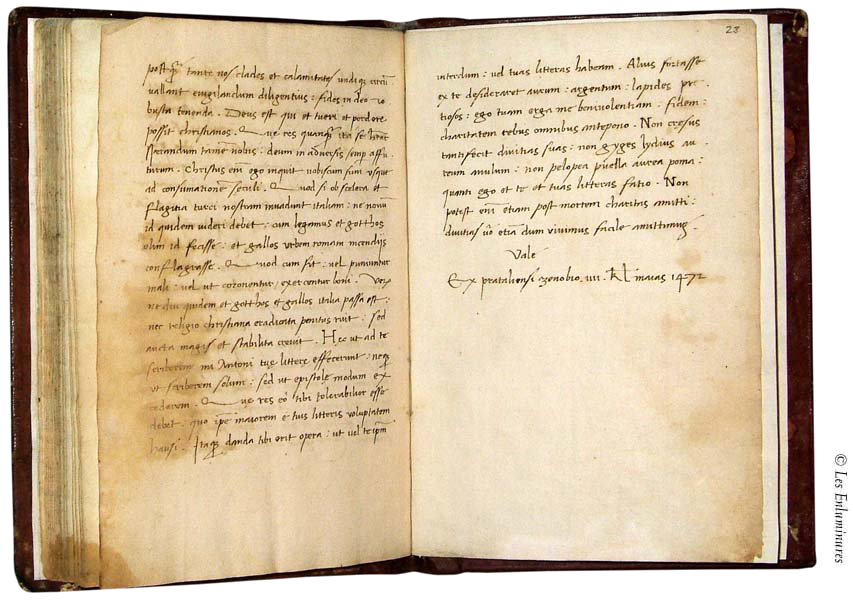 postq̃ tante nos clades et calamitates undiq; circũ
vallant euigilandum diligentius : fides in deo ro
busta tenenda . Deus est qui et tueri et perdere
possit christianos . Que res quanq̃ ita se
sperandum tamẽ nobis : deum in aduersis semp affu
turum . Christus em̃ ego inquit uobiscum sum usque
ad consumationẽ seculi . Quod si ob scelera et
flagitia turci nostram inuadunt italiam : ne nouũ
id quidem uideri debet : cum legamus et gotthos
olim id fecisse : et gallos urbem romam incendijs
conflagrasse . Quod cum fit : uel puniuntur
mali : uel ut coronentur / exercentur boni .
ne diu quidem et gotthos et gallos italia passa est :
nec religio christiana eradicata penitus ruit : sed
aucta magis et stabilita creuit . Hec ut ad te
scriberem mi Antoni tuę litterę effecerunt : neq;
ut scriberem solum : sed ut epistole modum ex
cederem . Que res eo tibi tolerabilior esse
debet : quo ipẽ maiorem e tuis litteris uoluptatem
hausi . Itaq; danda tibi erit opera : ut uel te ipm̃
23
interdum : uel tuas litteras habeam . Alius fortasse
ex te desideraret aurum : argentum : lapides pre
tiosos : ego tuam erga me beniuolentiam : fidem :
charitatem rebus omnibus antepono . Non cresus
tanti fecit diuitias suas : non gyges lydius au
reum anulum : non pelopea puella aurea poma :
quanti ego et te et tuas litteras facio . Non
potest em̃ etiam post mortem charitas amitti :
diuitias uõ etiã dum uiuimus facile amittimus .
Vale
Ex prataliensi zenobio . iiii . kl maias 1472
© Les Enluminures